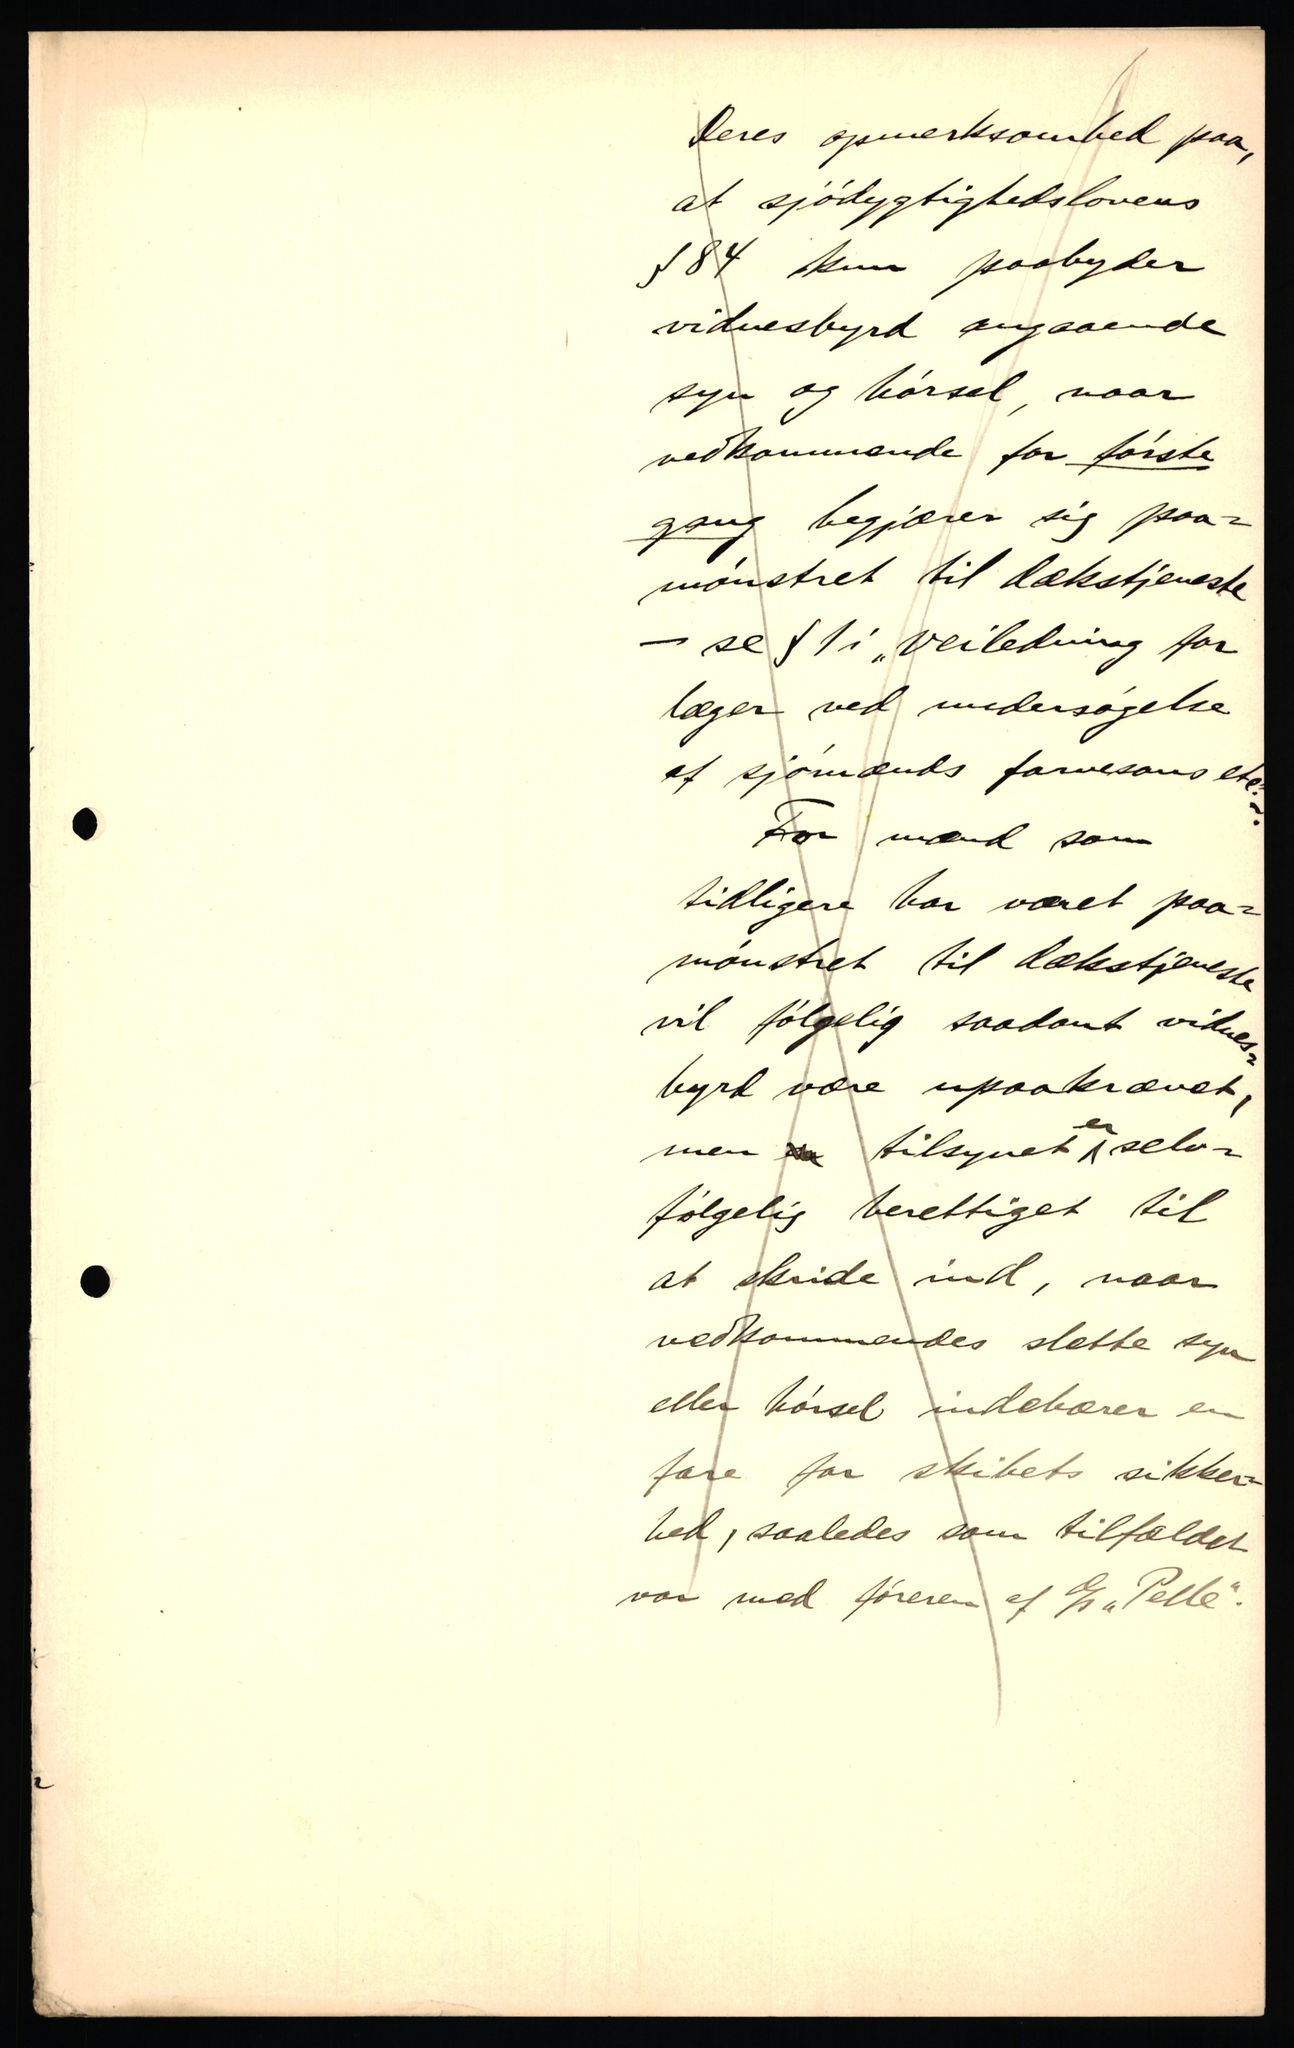 Deres opmerksomhed paa,
at sjödygtighedslovens
§ 84 kun paabyder
vidnesbyrd angaaende
syn og hörsel, naar
vedkommende for förste
gang begjærer sig paa-
mönstret til dækstjeneste
— se § 1 i „Veiledning for
læger ved undersögelse
af sjömænds farvesans etc."
For mænd som
tidligere har været paa-
mönstret til dækstjeneste
vil fölgelig saadant vidnes-
byrd være upaakrævet,
men tilsynet er selv-
fölgelig berettiget til
at skride ind, naar
vedkommendes slette syn
eller hörsel indebærer en
fare for skibets sikker-
hed, saaledes som tilfældet
var med föreren af G/s „Pelle".